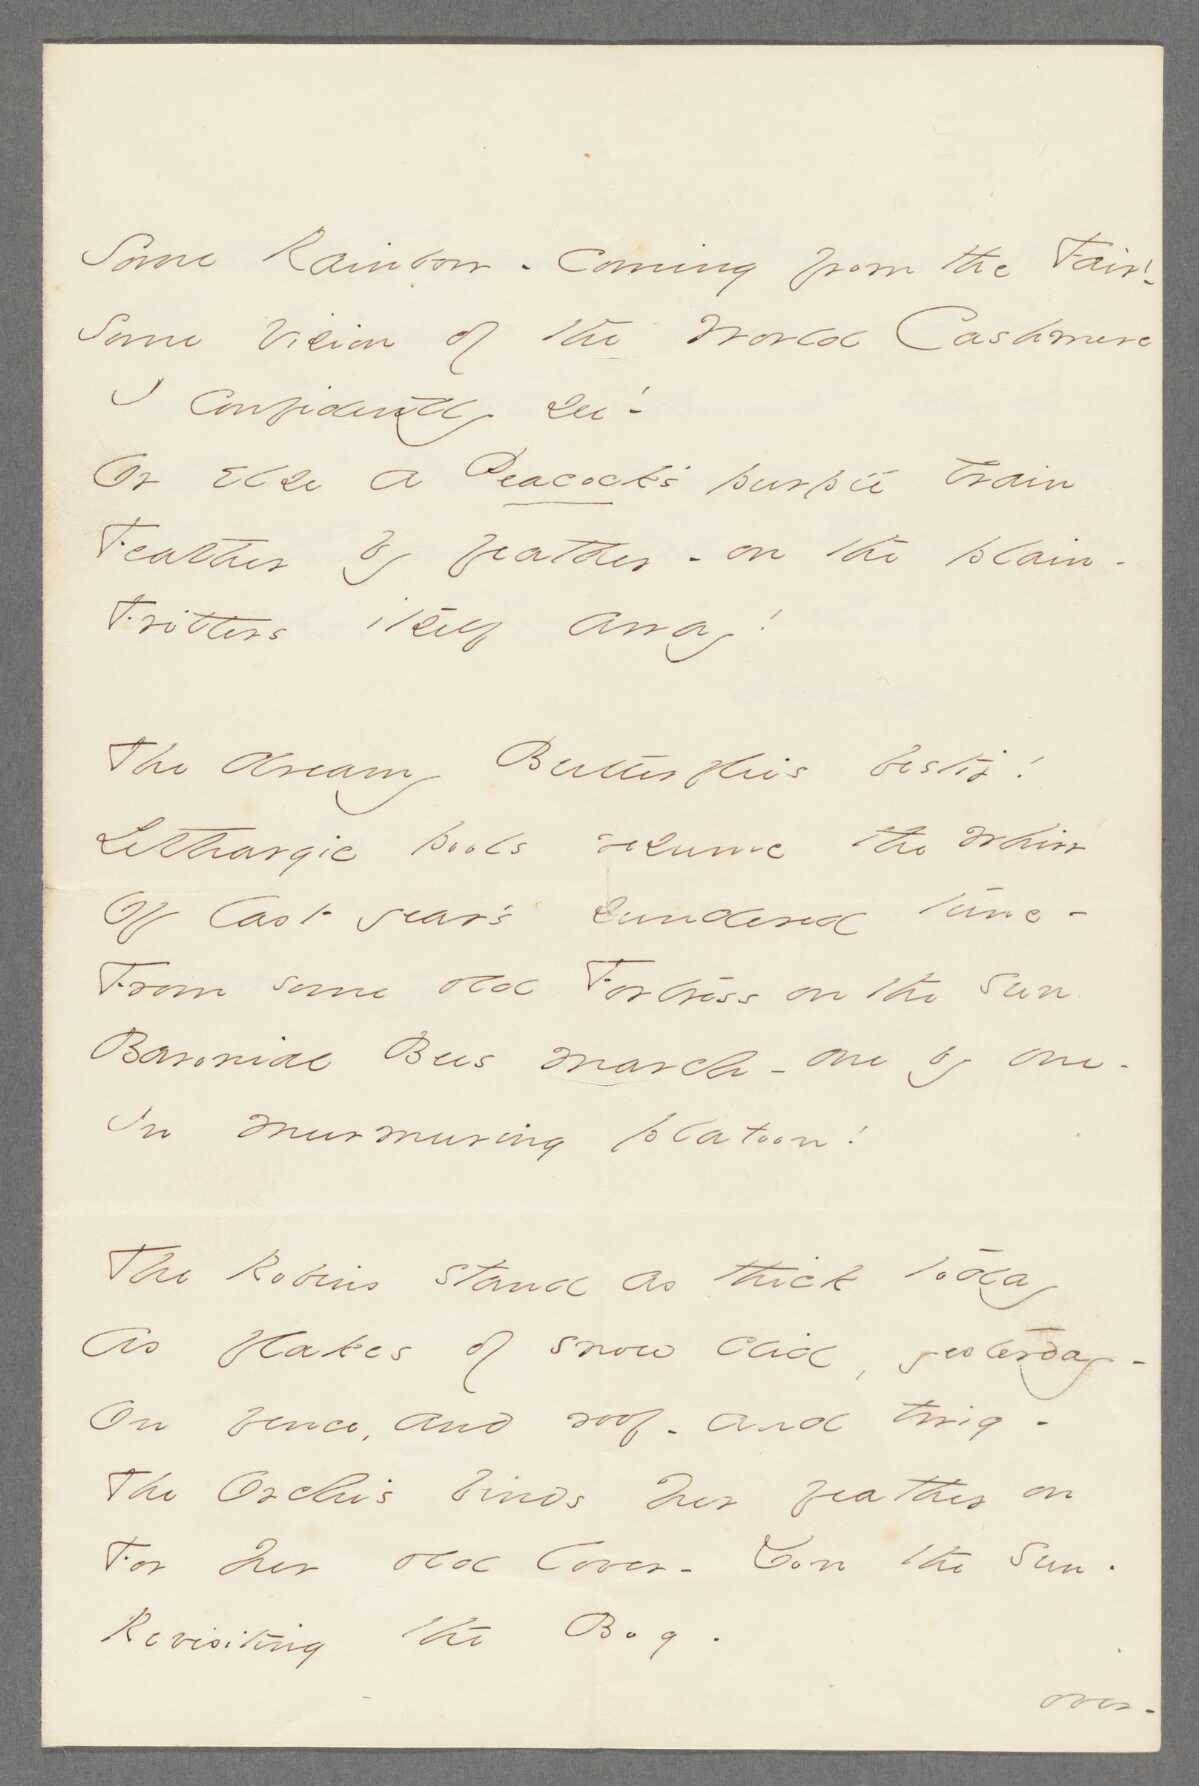 Some Rainbow - coming from the Fair! -
Some Vision of the World Cashmere
I confidently see! -
Or else a Peacock's purple train
Feather by feather - on the plain -
Fritters itself away!
The dreamy Butterflies bestir!
Lethargic pools resume the whirr
Of last year's sundered tune -
From some old Fortress on the Sun
Baronial Bees march - one by one -
In murmuring platoon!
The Robins stand as thick today
As flakes of snow did, yesterday -
On fence, and roof - and twig -
The Orchis binds her feather on
For her old lover - Don the Sun -
Revisiting the Bog.
over -